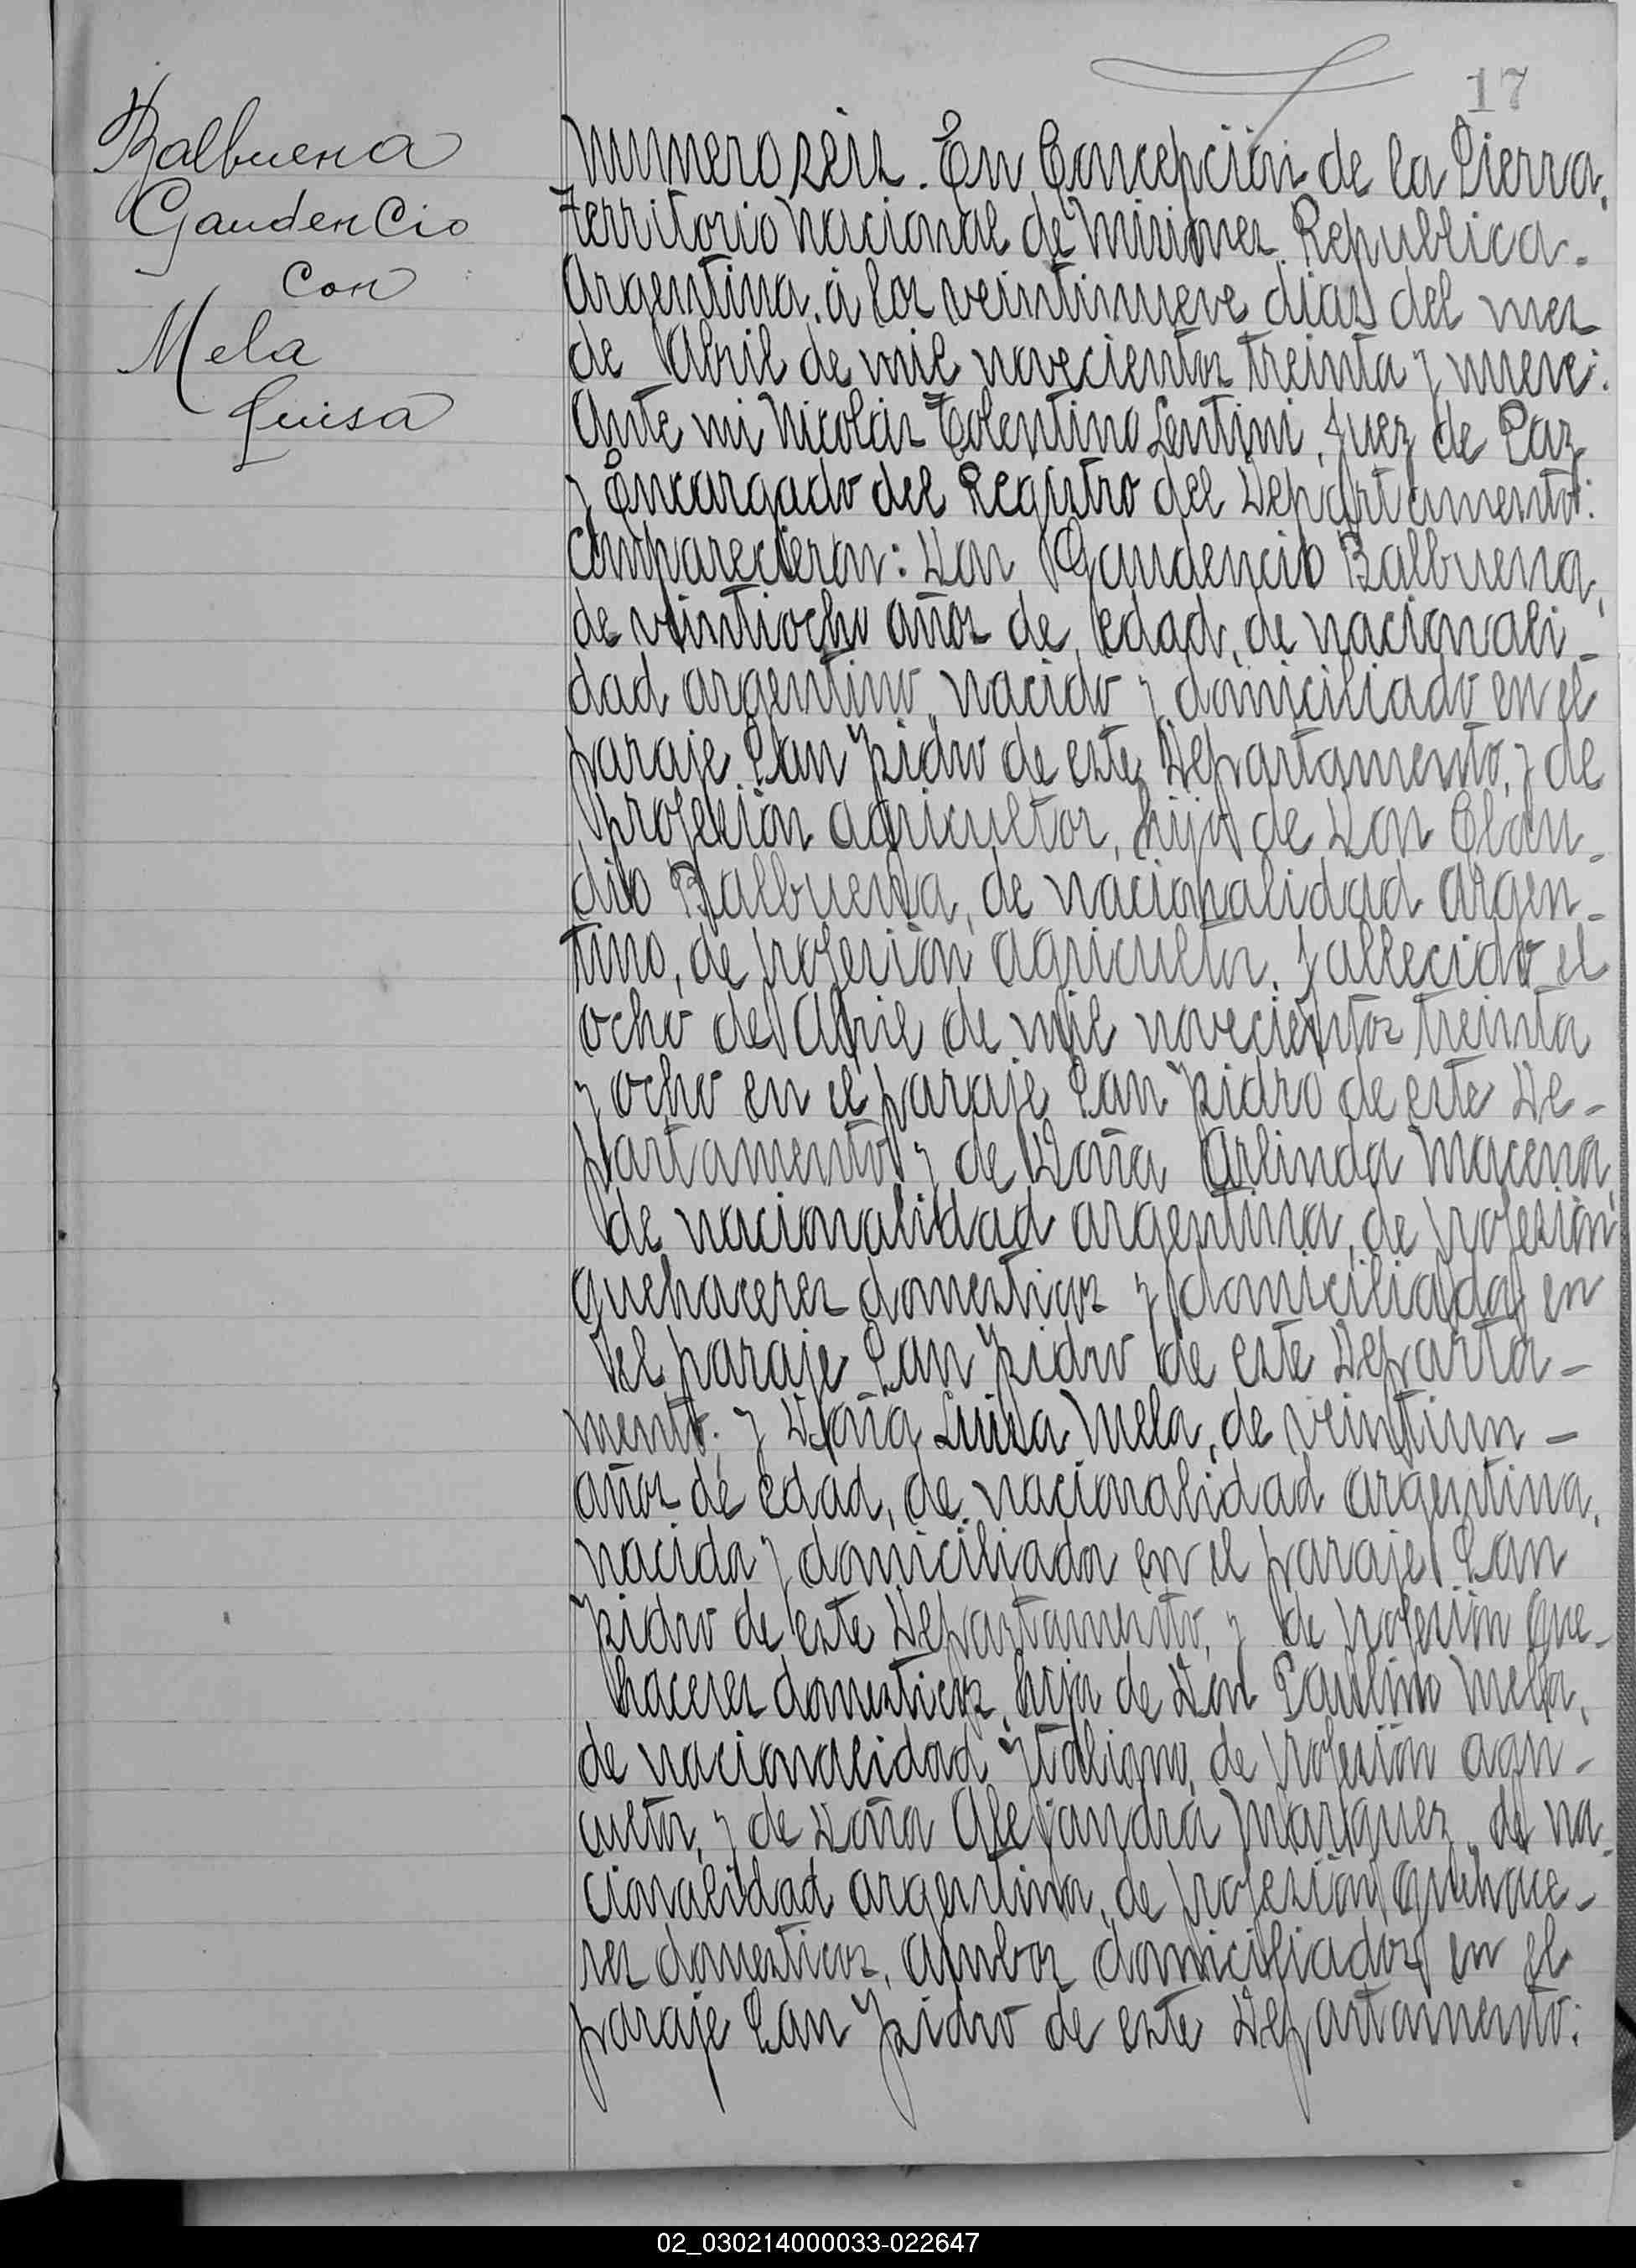 17
Balbuena
Gaudencio
con
Mela
Luisa
Numero seis. En Concepción de la Sierra,
territorio Nacional de Misiones, Republica
Argentina, á los veintinueve dias del mes
de Abril de mil novecientos treinta y nueve:
Ante mi Nicolás Tolentino Lentini, Juez de Paz
y Encargado del Registro del Departamento:
Comparecieron: Don Gaudencio Balbuena,
de veintiocho años de edad, de nacionali-
dad argentino, nacido y domiciliado en el
paraje San Ysidro de este Departamento, y de
profesión agricultor, hijo de Don Clau-
dio Balbuena, de nacionalidad argen-
tino, de profesión agricultor, fallecido el
ocho de Abril de mil novecientos treinta
y ocho en el paraje San Ysidro de este De-
partamento y de Doña Arlinda Macena,
de nacionalidad argentina, de profesión
quehaceres domesticos y domiciliada en
el paraje San Ysidro de este Departa-
mento; y Doña Luisa Mela, de veintiun -
años de edad, de nacionalidad argentina,
nacida y domiciliada en el paraje San
Ysidro de este Departamento, y de profesión que-
haceres domesticos, hija de Don Paulino Mela,
de nacionalidad ytaliano, de profesión agri-
cultor, y de Doña Alejandra Marquez, de na-
cionalidad argentina, de profesión quehace-
res domesticos, ambos domiciliados en el
paraje San Ysidro de este Departamento:
02_030214000033-022647